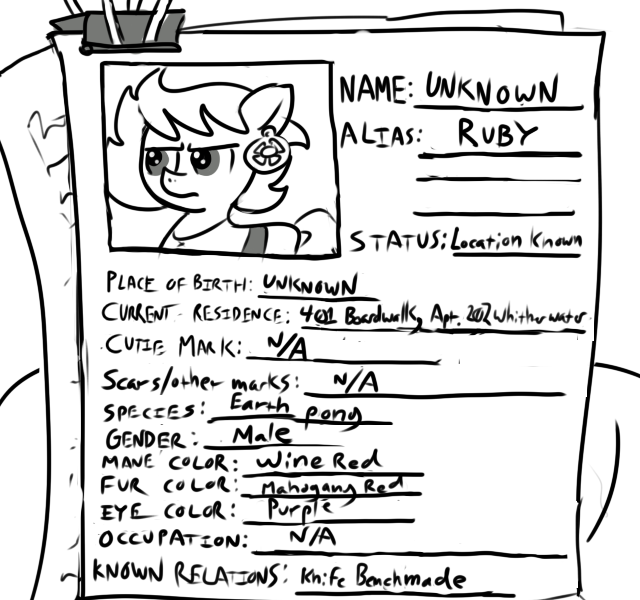 NAME: UNKNOWN
ALIAS: RUBY
STATUS: Location Known
PLACE OF BIRTH: UNKNOWN
CURRENT RESIDENCE: 401 Boardwalk, Apt. 202 Whitherwater
CUTIE MARK: N/A
Scars/other marks: N/A
SPECIES: Earth pony
GENDER: Male
MANE COLOR: Wine Red
FUR COLOR: Mahogany Red
EYE COLOR: Purple
OCCUPATION: N/A
KNOWN RELATIONS: Knife Benchmade